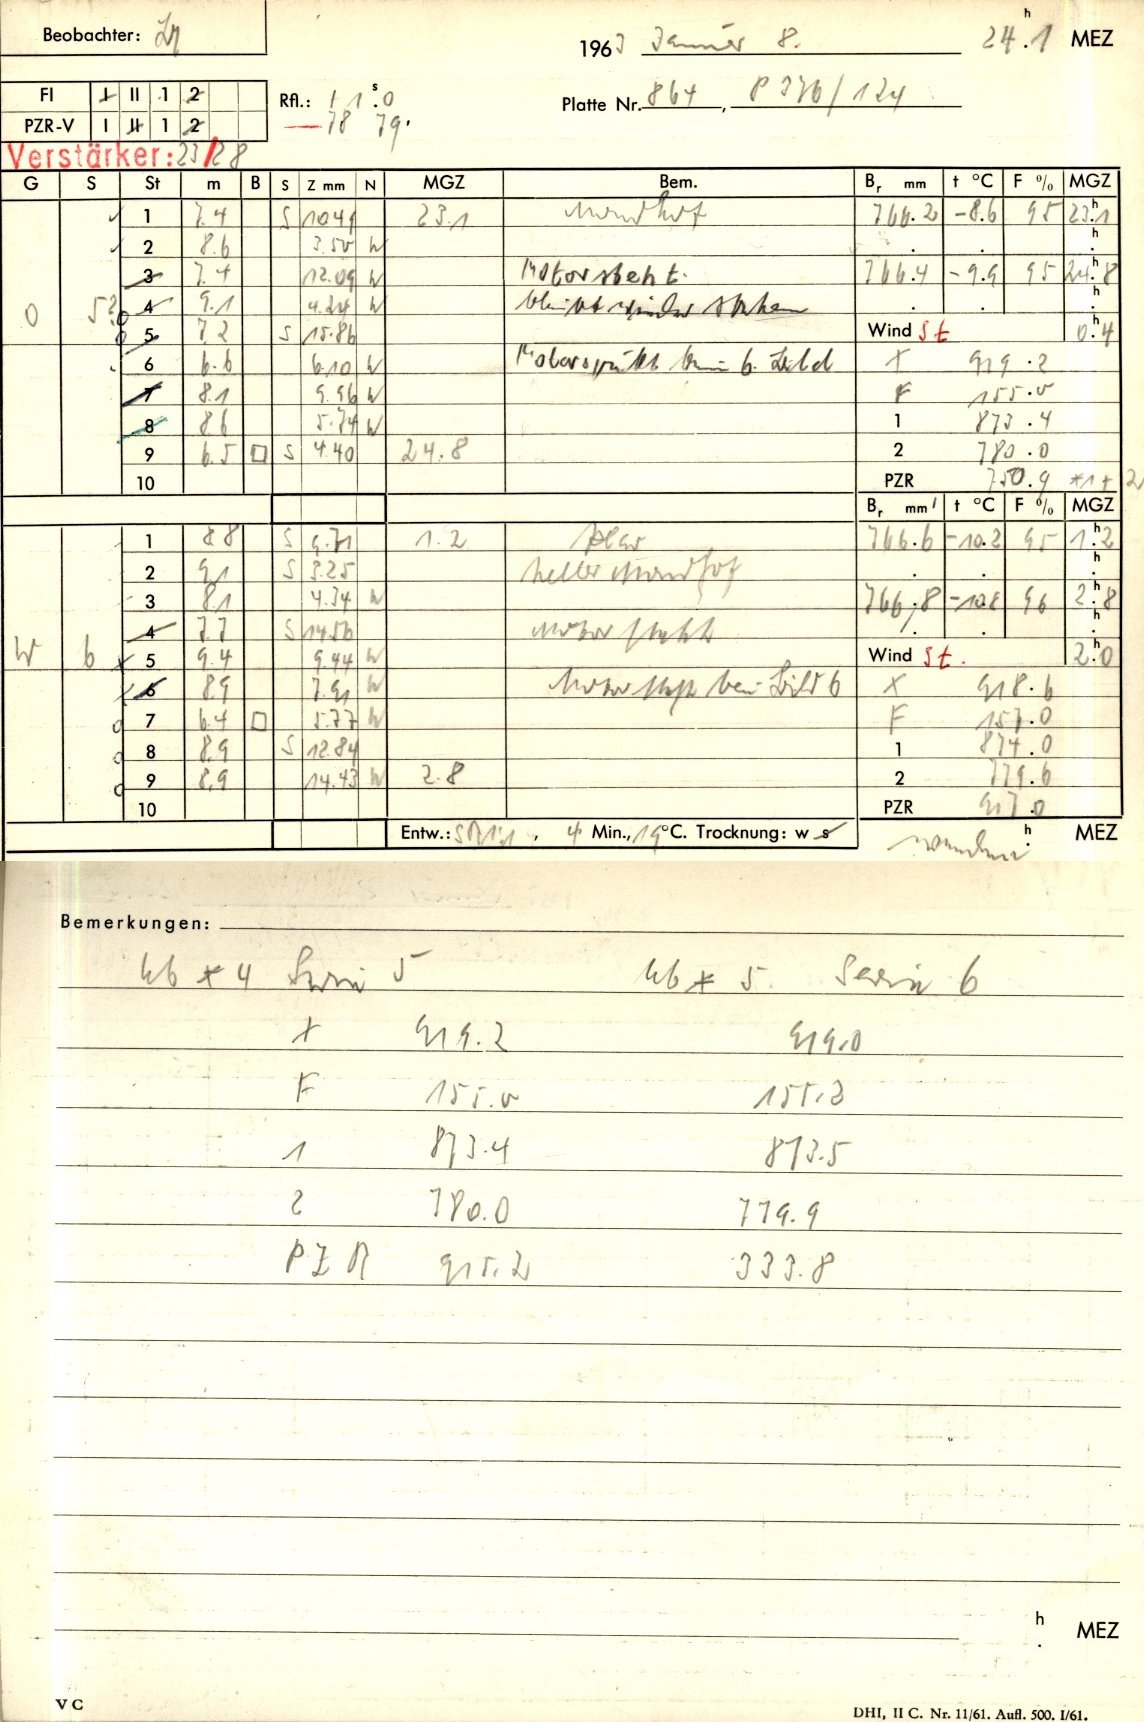 Beobachter:
1963 Januar 8. 24.1 h MEZ
FI I II 1 2
Rfl.: +1.0 s
Platte Nr. 864, P 376/124
PZR-V I II 1 2
78 79.
Verstärker: 23/28
G S St m B S Z mm N MGZ Bem. Br mm t °C F % MGZ
1 7.4 S 10.49 23.1 Mondhof 766.2 -8.6 95 23.1 h
2 8.6 3.50 W
3 7.4 12.09 W Motor steht. 766.4 -9.9 95 24.8 h
O 5 4 9.1 4.24 W bleibt wieder stehen
5 7.2 S 15.86 Wind St 0.4 h
6 6.6 6.10 W Motor spukt beim 6. Bild X 919.2
7 8.1 9.96 W F 155.0
8 8.6 5.74 W 1 873.4
9 6.5 □ S 4.40 24.8 2 780.0
10 PZR 750.9 *1+2
Br mm t °C F % MGZ
1 8.8 S 9.71 1.2 klar 766.6 -10.2 95 1.2 h
2 9.1 S 3.25 heller Mondhof
3 8.1 4.34 W 766.8 -10.8 96 2.8 h
4 7.7 S 14.56 Motor steht
W 6 5 9.4 9.44 W Wind St. 2.0 h
6 8.9 7.91 W Motor steht bei Bild 6 X 918.6
7 6.4 □ 5.77 W F 157.0
8 8.9 S 12.84 1 874.0
9 8.9 14.43 W 2.8 2 779.6
10 PZR 917.0
Entw.: 4 Min., 19°C. Trocknung: w s wenden h MEZ
Bemerkungen:
Ub * 4 Serie 5 Ub * 5. Serie 6
X 919.2 919.0
F 155.0 155.2
1 873.4 873.5
2 780.0 779.9
PZR 915.2 333.8
h
. MEZ
V C
DHI, II C. Nr. 11/61. Aufl. 500. I/61.